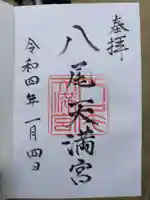 奉拝
八尾天満宮
令和四年一月四日